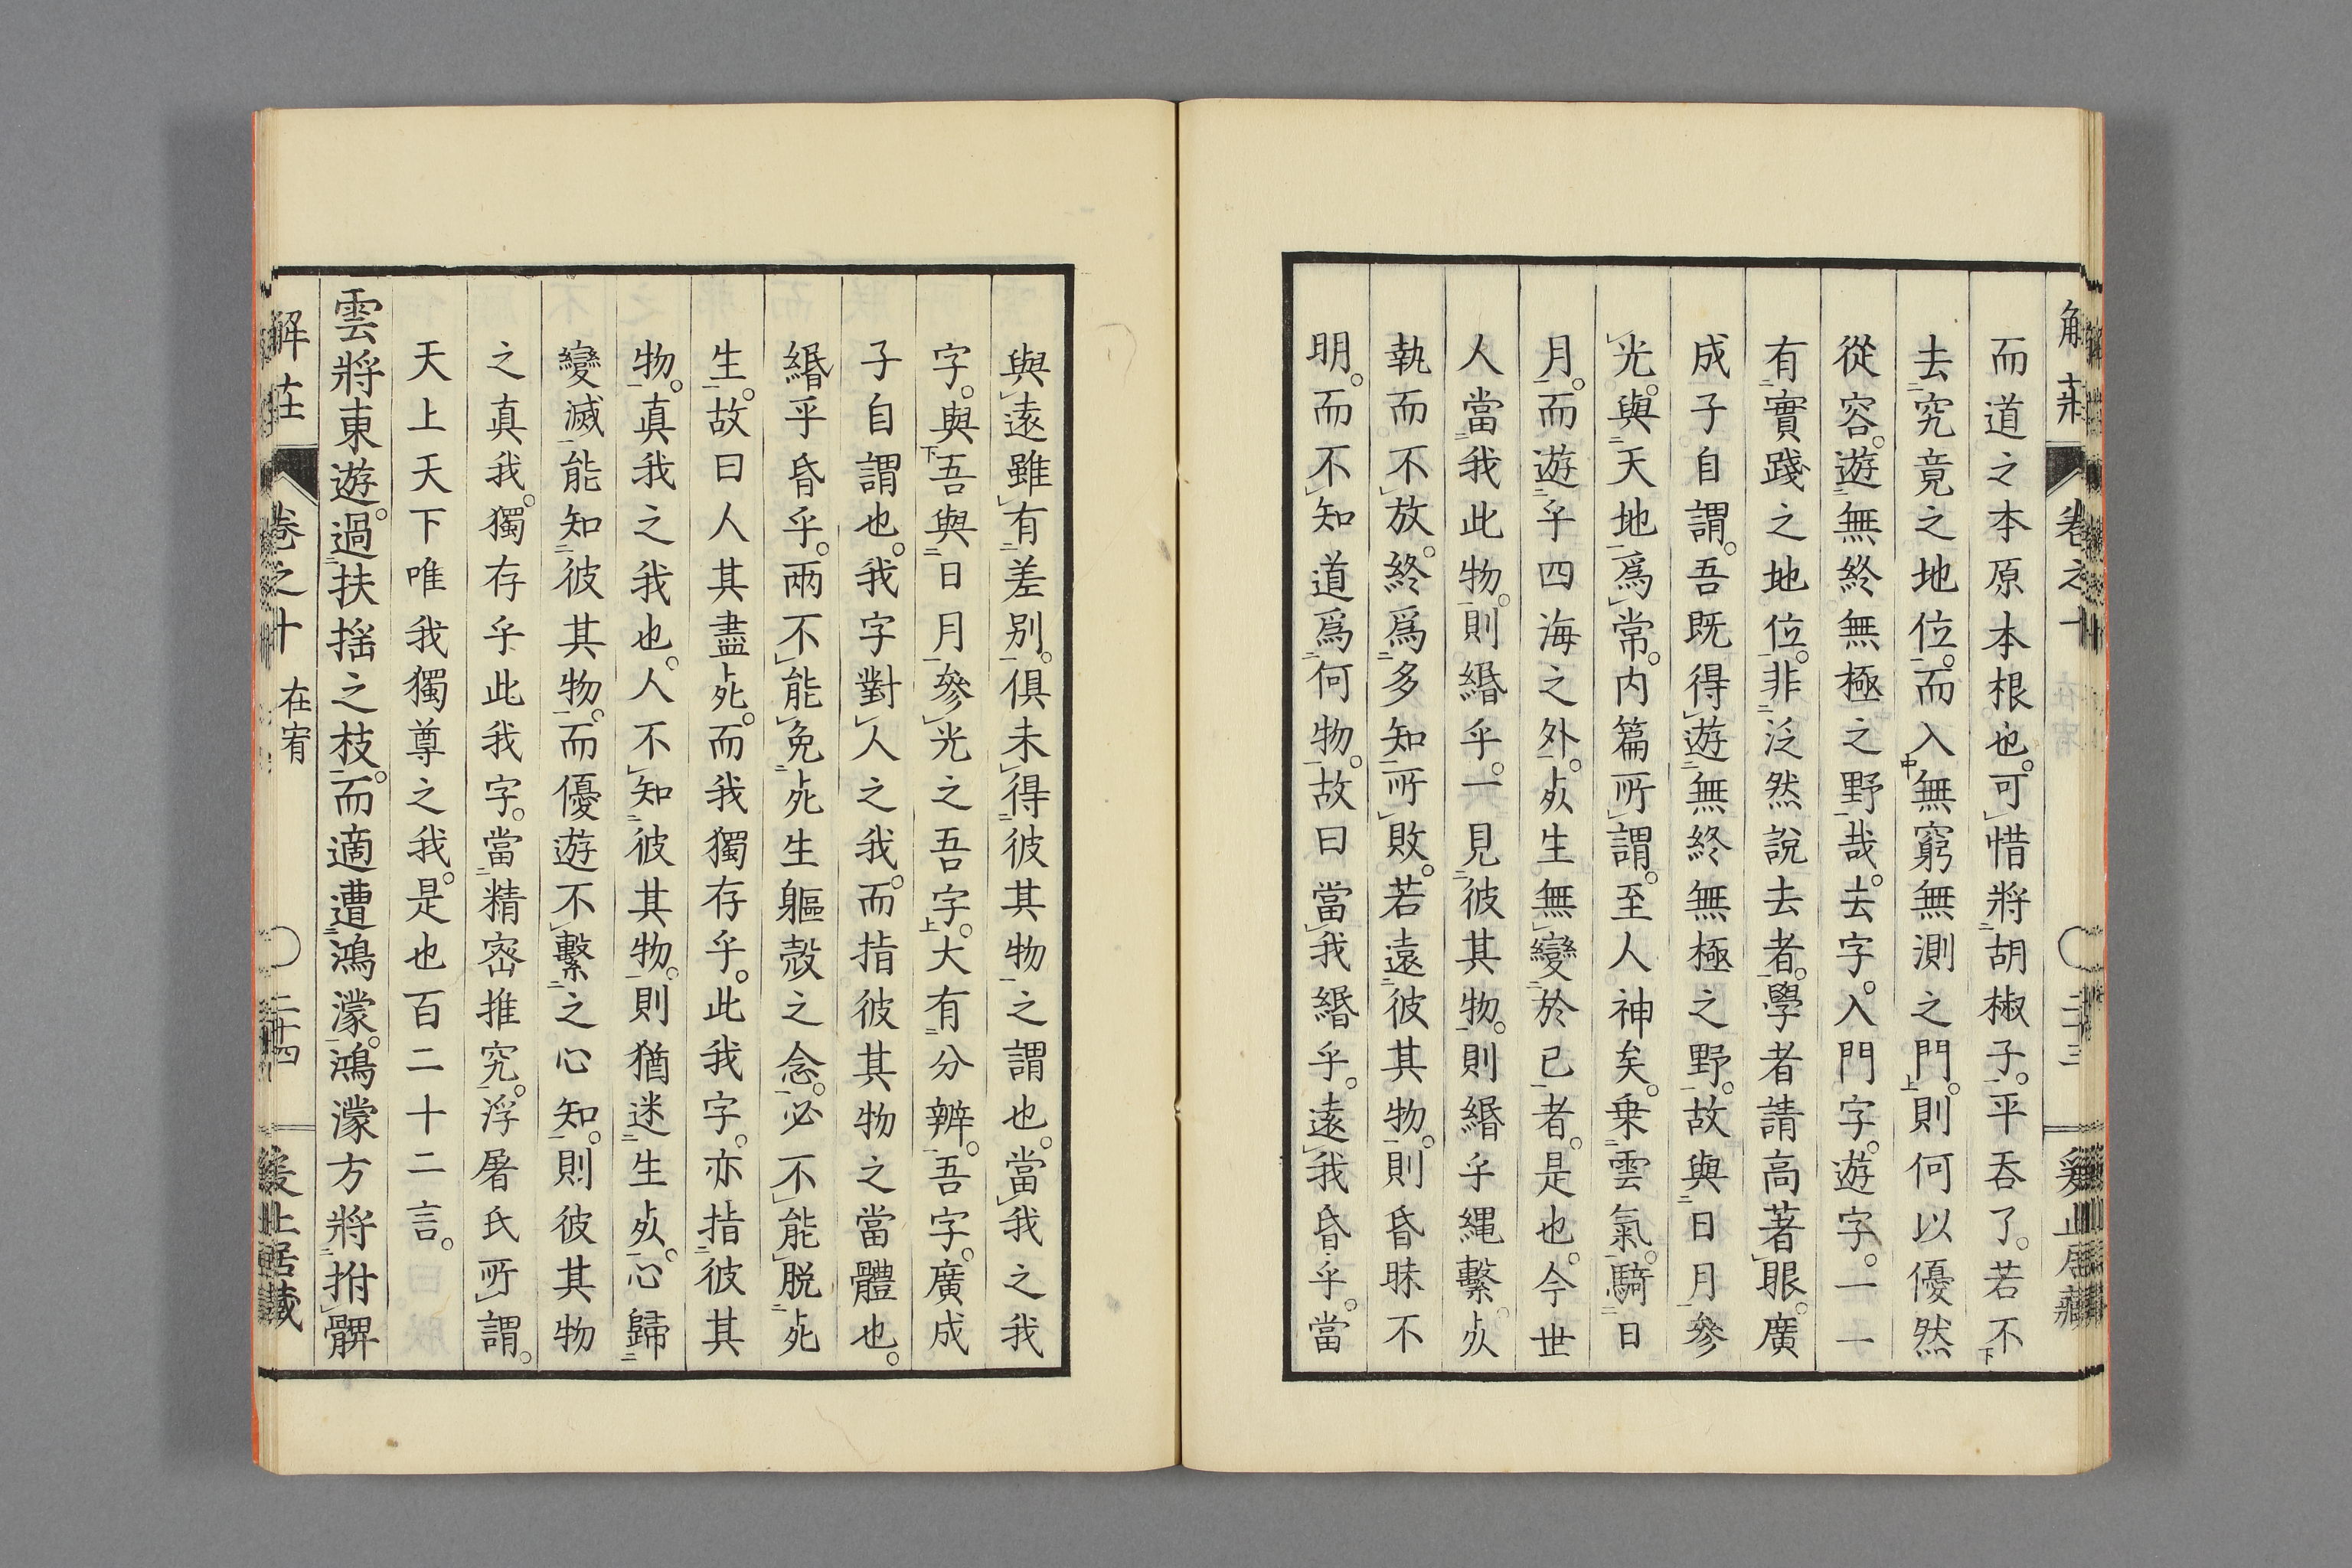 解莊 卷之十 在宥 〇二十三
而道之本原本根也。可惜將胡椒子。平吞了。若不
去究竟之地位。而入無窮無測之門。則何以優然
從容。遊無終無極之野哉。去字。入門字。遊字。一一
有實踐之地位。非泛然說去者。學者請高著眼。廣
成子自謂。吾既得遊無終無極之野。故與日月參
光。與天地爲常。内篇所謂。至人神矣。乗雲氣。騎日
月。而遊乎四海之外。死生無變於已者。是也。今世
人當我此物。則緡乎。一見彼其物。則緡乎縄繫。死
執而不放。終爲多知所敗。若遠彼其物。則昏昧不
明。而不知道爲何物。故曰當我緡乎。遠我昏乎。當
與遠雖有差別。俱未得彼其物之謂也。當我之我
字。與吾與日月參光之吾字。大有分辨。吾字。廣成
子自謂也。我字對人之我。而指彼其物之當體也。
緡乎昏乎。兩不能免死生軀殼之念。必不能脱死
生。故曰人其盡死。而我獨存乎。此我字。亦指彼其
物。真我之我也。人不知彼其物。則猶迷生死。心歸
變滅。能知彼其物。而優遊不繫之心知。則彼其物
之真我。獨存乎此我字。當精密推究。浮屠氏所謂。
天上天下唯我獨尊之我。是也百二十二言。
雲將東遊。過扶揺之枝。而適遭鴻濛。鴻濛方將拊髀
解莊 卷之十 在宥 〇二十四